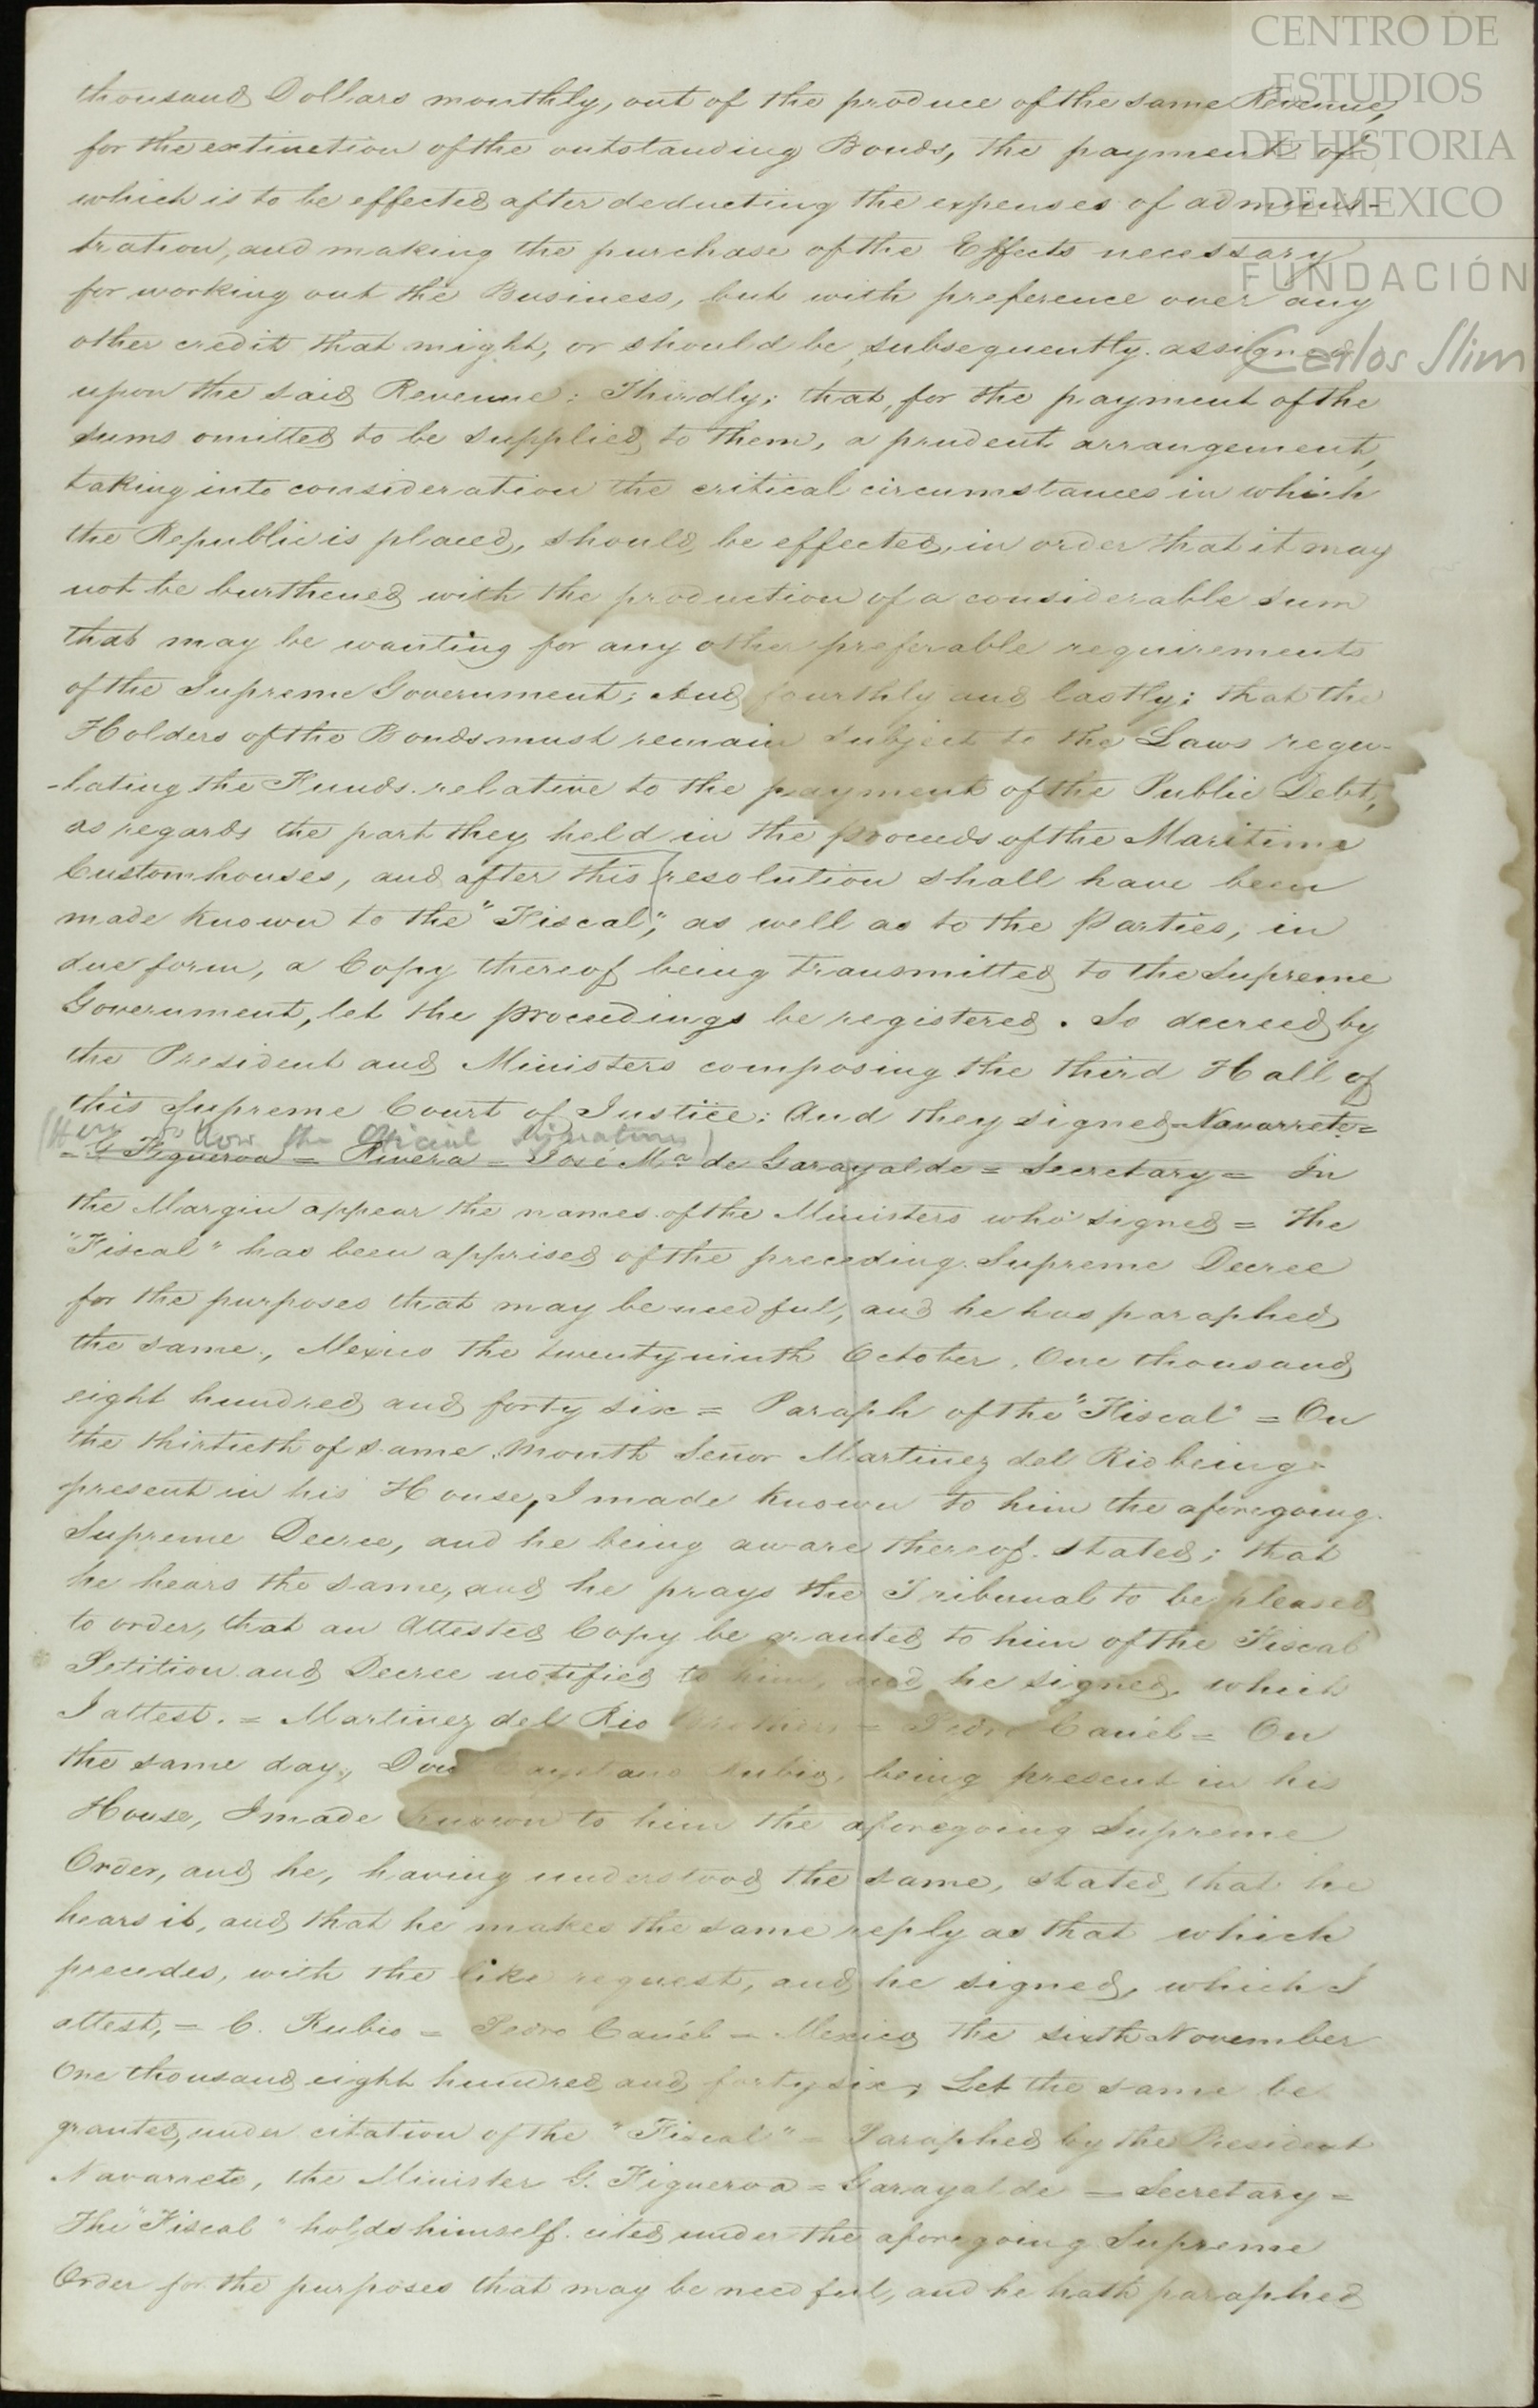 CENTRO DE
ESTUDIOS
DE HISTORIA
DE MEXICO
FUNDACIÓN
Carlos Slim
thousand Dollars monthly, out of the produce of the same Revenue,
for the extinction of the outstanding Bonds, the payment of
which is to be effected after deducting the expenses of adminis-
tration, and making the purchase of the Effects necessary
for working out the Business, but with preference over any
other credit that might, or should be, subsequently assigned
upon the said Revenue: Thirdly; that, for the payment of the
sums omitted to be supplied to them, a prudent arrangement,
taking into consideration the critical circumstances in which
the Republic is placed, should be effected, in order that it may
not be burthened with the production of a considerable sum
that may be wanting for any other preferable requirements
of the Supreme Government; And fourthly and lastly; that the
Holders of the Bonds must remain subject to the Laws regu-
-lating the Funds relative to the payment of the Public Debt,
as regards the part they held in the proceeds of the Maritime
Customhouses, and after this resolution shall have been
made known to the "Fiscal", as well as to the Parties, in
due form, a Copy thereof being transmitted to the Supreme
Government, let the proceedings be registered. So decreed by
the President and Ministers composing the third Hall of
this Supreme Court of Justice: And they signed = Navarrete =
(Here follow the Official signatures)
= G Figueroa = Rivera = José Ma. de Garayalde = Secretary = In
the Margin appear the names of the Ministers who signed = The
"Fiscal" has been apprised of the preceding Supreme Decree
for the purposes that may be needful, and he has paraphed
the same, Mexico the twenty ninth October, One thousand
eight hundred and forty six = Paraph of the "Fiscal" = On
the thirtieth of same month Señor Martinez del Rio being
present in his House, I made known to him the aforegoing
Supreme Decree, and he being aware thereof stated; that
he hears the same, and he prays the Tribunal to be pleased
to order, that an Attested Copy be granted to him of the Fiscal
Petition and Decree notified to him, and he signed, which
I attest. = Martinez del Rio Brothers = Pedro Cañéb = On
the same day, Don Cayetano Rubio, being present in his
House, I made known to him the aforegoing Supreme
Order, and he, having understood the same, stated that he
hears it, and that he makes the same reply as that which
precedes, with the like request, and he signed, which I
attest, = C. Rubio = Pedro Cañéb = Mexico the sixth November
One thousand eight hundred and forty six, Let the same be
granted, under citation of the "Fiscal" = Paraphed by the President
Navarrete, the Minister G. Figueroa = Garayalde = Secretary =
The "Fiscal" holds himself cited under the aforegoing Supreme
Order for the purposes that may be needful, and he hath paraphed